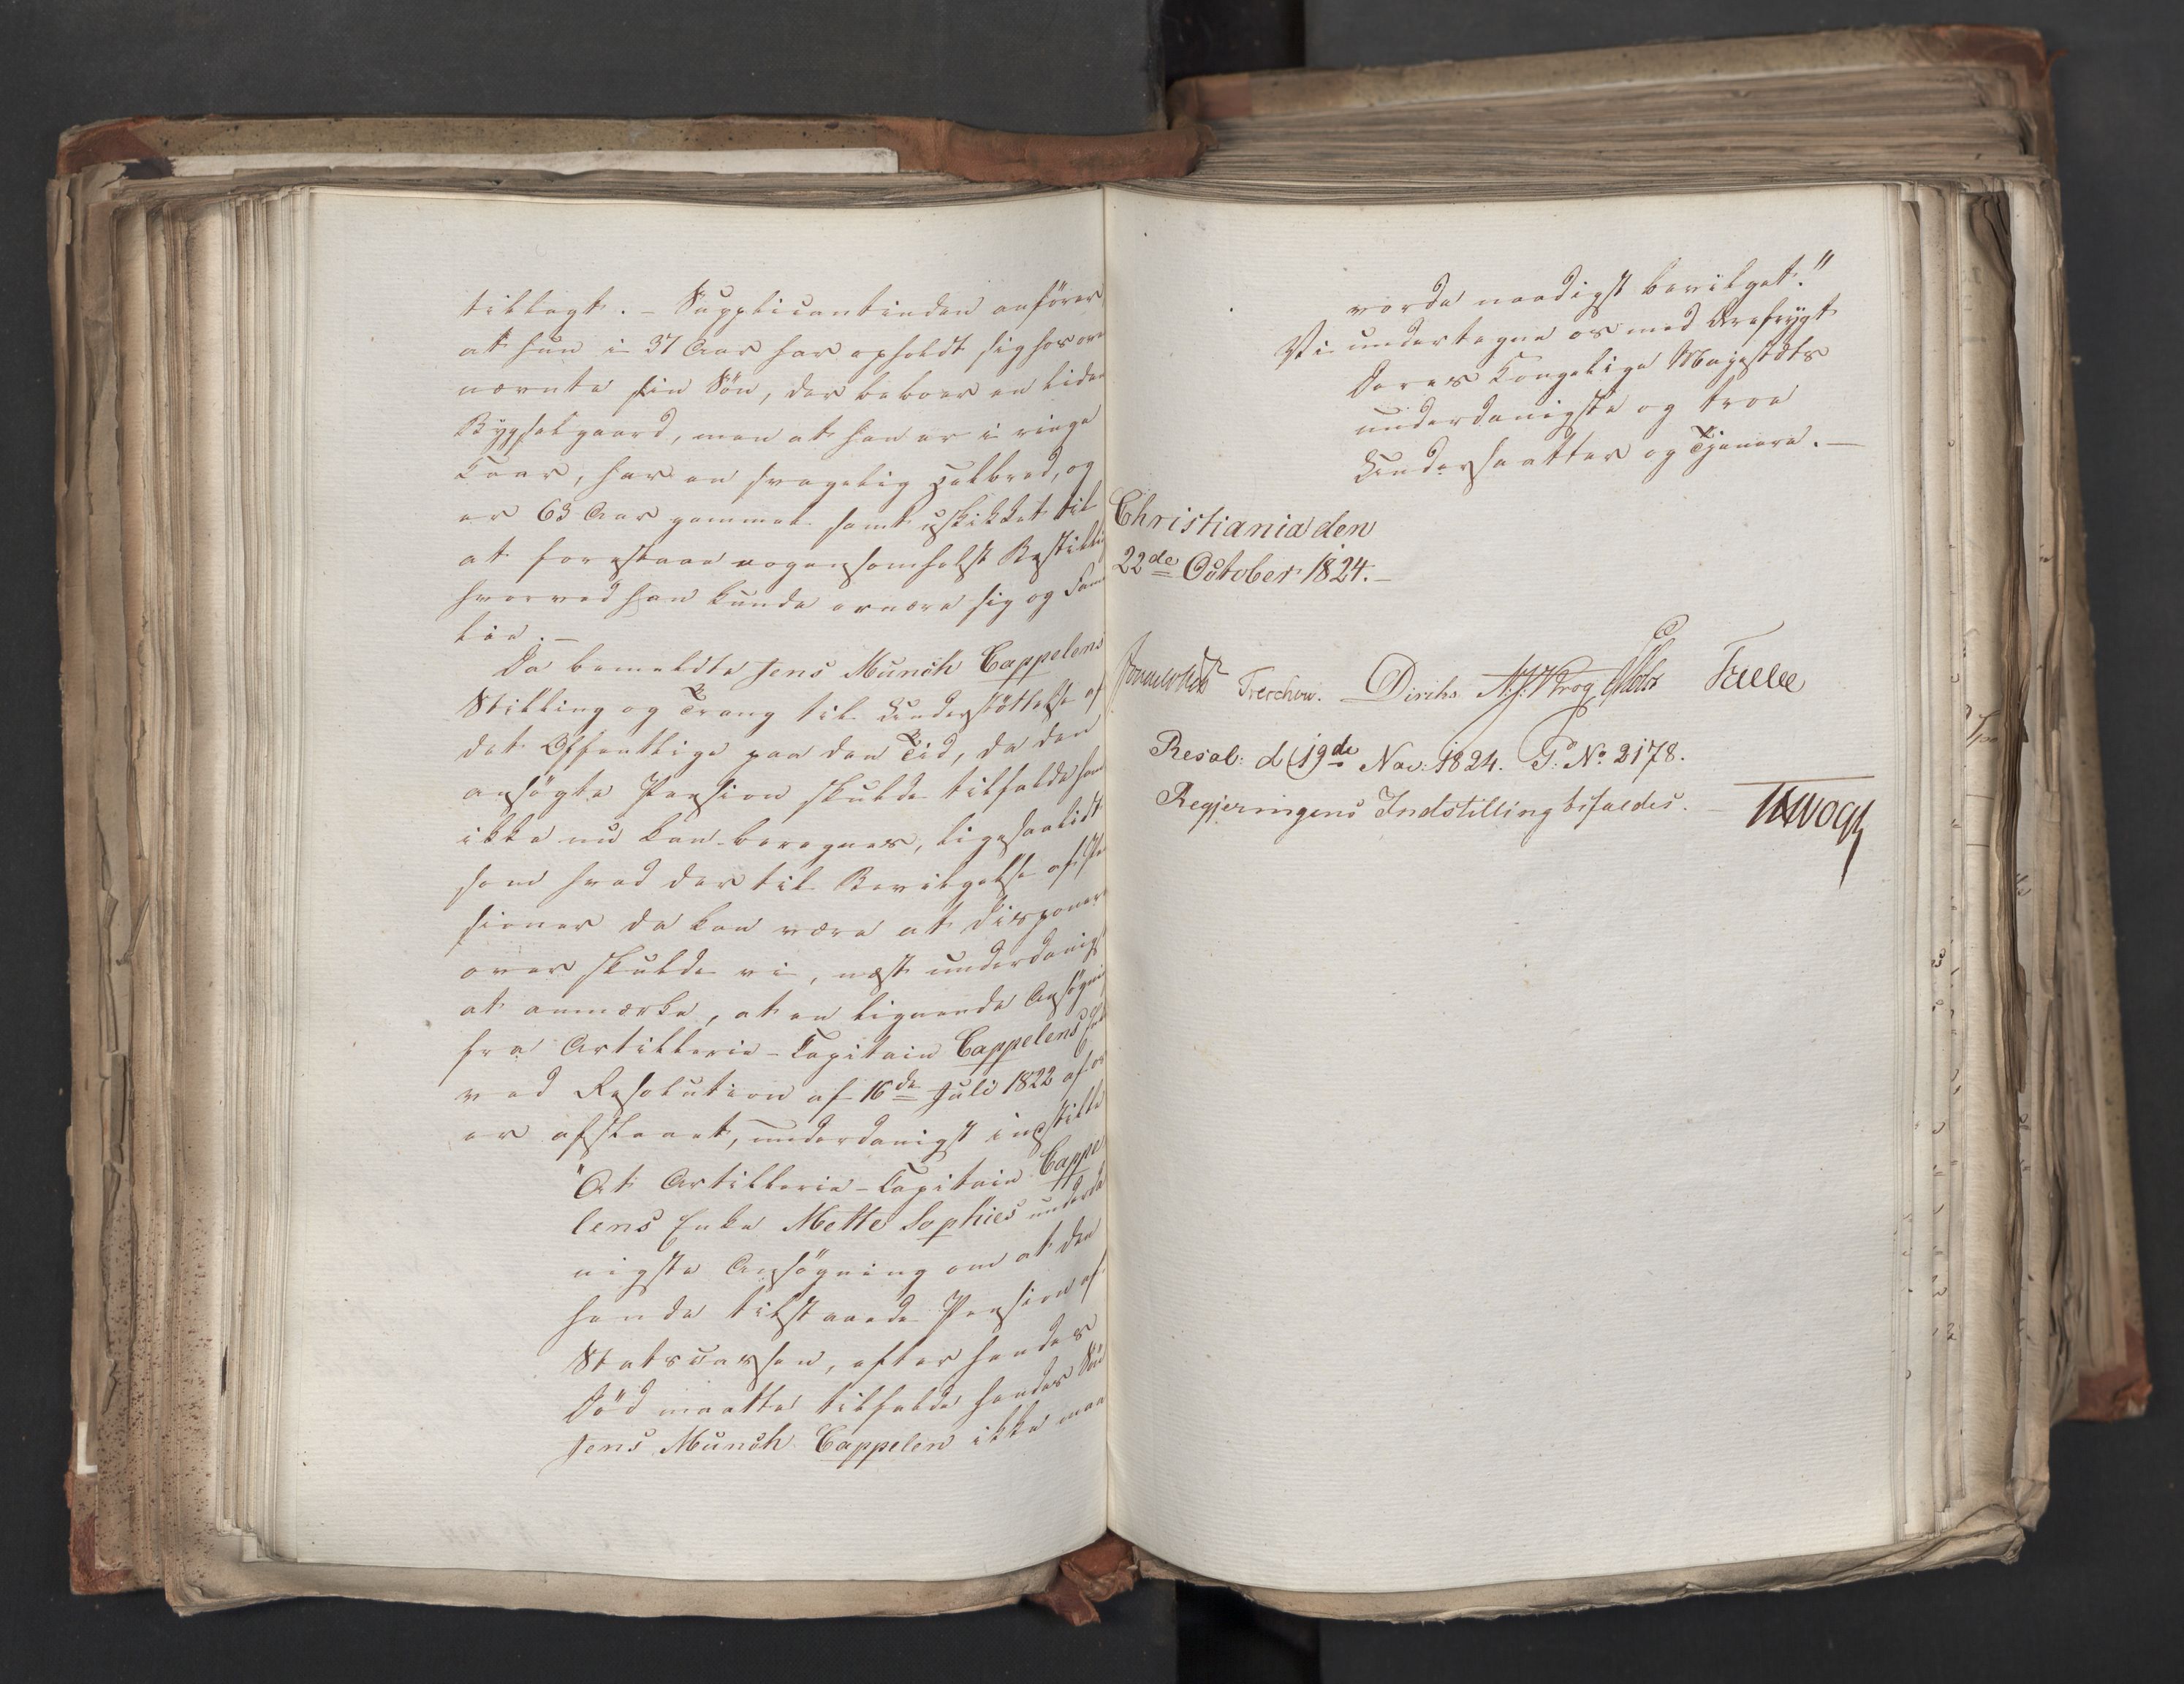 tillagt. – Supplicantinden anförer
at hun i 37 Aar har opholdt sig hos ov
nævnte sin Sön, der beboer en liden
Bygselgaard, men at han er i ringe
Kaar, har en svagelig Helbred, og
er 63 Aar gammel samt uskikket til
at forestaae nogensomhelst Bestilli
hvorved han kunde ernære sig og Fami
lie. –
Da bemeldte Jens Munch Cappelens
Stilling og Trang til Understöttelse af
det Offentlige paa den Tid, da den
ansögte Pension skulde tilfalde ham
ikke nu kan beregnes, ligesaalidt
som hvad der til Bevilgelse af Pen
sioner da kan være at disponere
over skulde vi, næst underdanigst
at anmærke, at en lignende Ansögning
fra Artillerie-Capitain Cappelens
ved Resolution af 16de Juli 1822 af os
er afslaaet, underdanigst indstille
"At Artillerie-Capitain Cappe
lens Enke Mette Sophies underda
nigste Ansögning om at den
hende tilstaaede Pension af
Statscassen, efter hendes
Död maatte tilfalde hendes Sön
Jens Munch Cappelen ikke maa
vorde naadigst bevilget."
Vi undertegne os med Ærefrygt
Deres Kongelige Majestæts
underdanigste og troe
Undersaatter og Tjenere. –
Christiania den
22de October 1824. –
Sommerhielm Treschow. Diriks N.J. Krog Fasting
Resol: d 19de Nov: 1824. P. No 2178.
Regjeringens Indstilling bifaldes. –